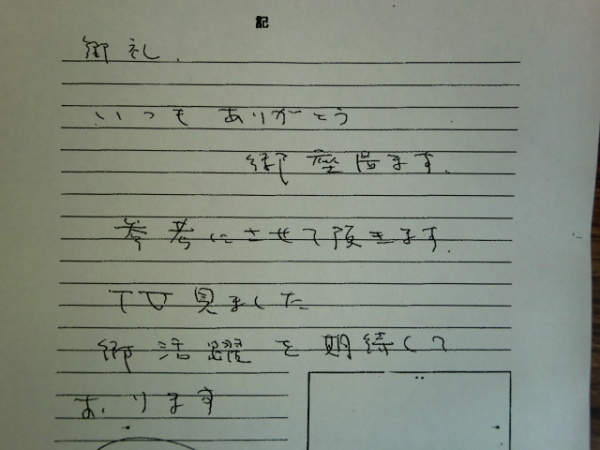 記
御礼.
いつもありがとう
御座居ます.
参考にさせて頂きます.
TV見ました
御活躍を期待して
おります